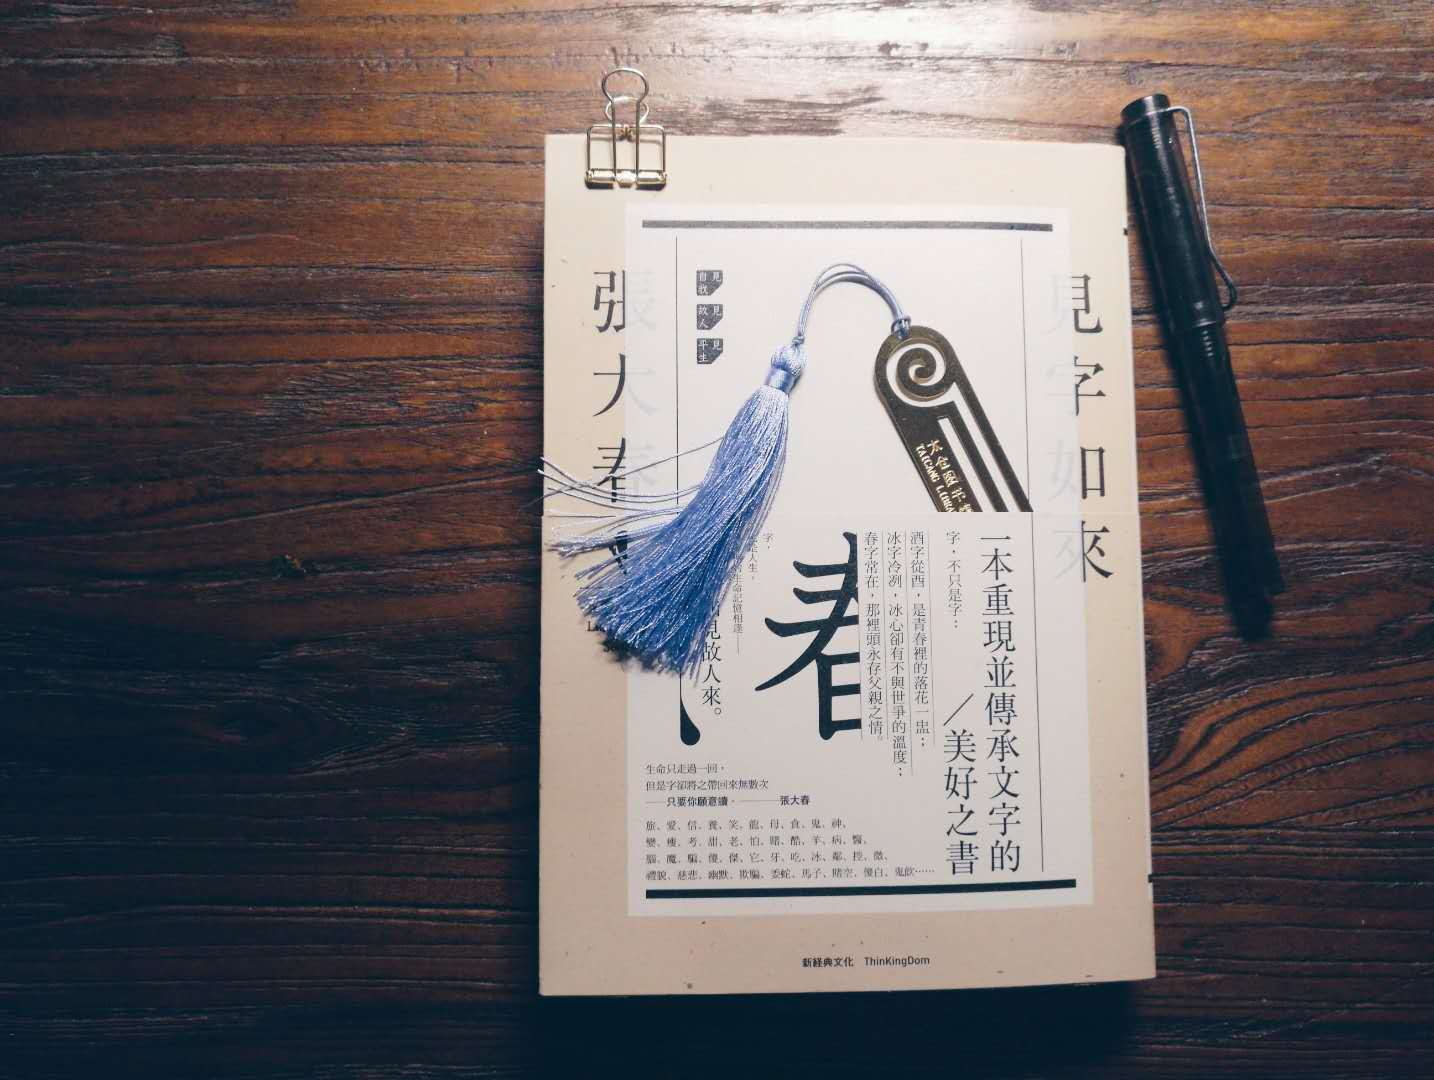 見字如來
張大春
見自我
見故人
見平生
一本重現並傳承文字的
／美好之書
字，不只是字：
酒字從酉，是青春裡的落花一盅；
冰字冷冽，冰心卻有不與世爭的溫度；
春字常在，那裡頭永存父親之情。
春
字，
是人生，
生命記憶相逢——
見故人來。
生命只走過一回，
但是字卻將之帶回來無數次
——只要你願意讀。————張大春
旅、愛、信、養、笑、龍、母、食、鬼、神、
變、瘦、考、甜、老、怕、賭、酷、羊、病、醫、
腦、魔、騙、傻、傑、它、牙、吃、冰、鄰、控、微、
禮貌、慈悲、幽默、欺騙、委蛇、馬子、賭空、傻白、鬼飲……
新経典文化 ThinKingDom
太倉圖
TAICANG LIBRA